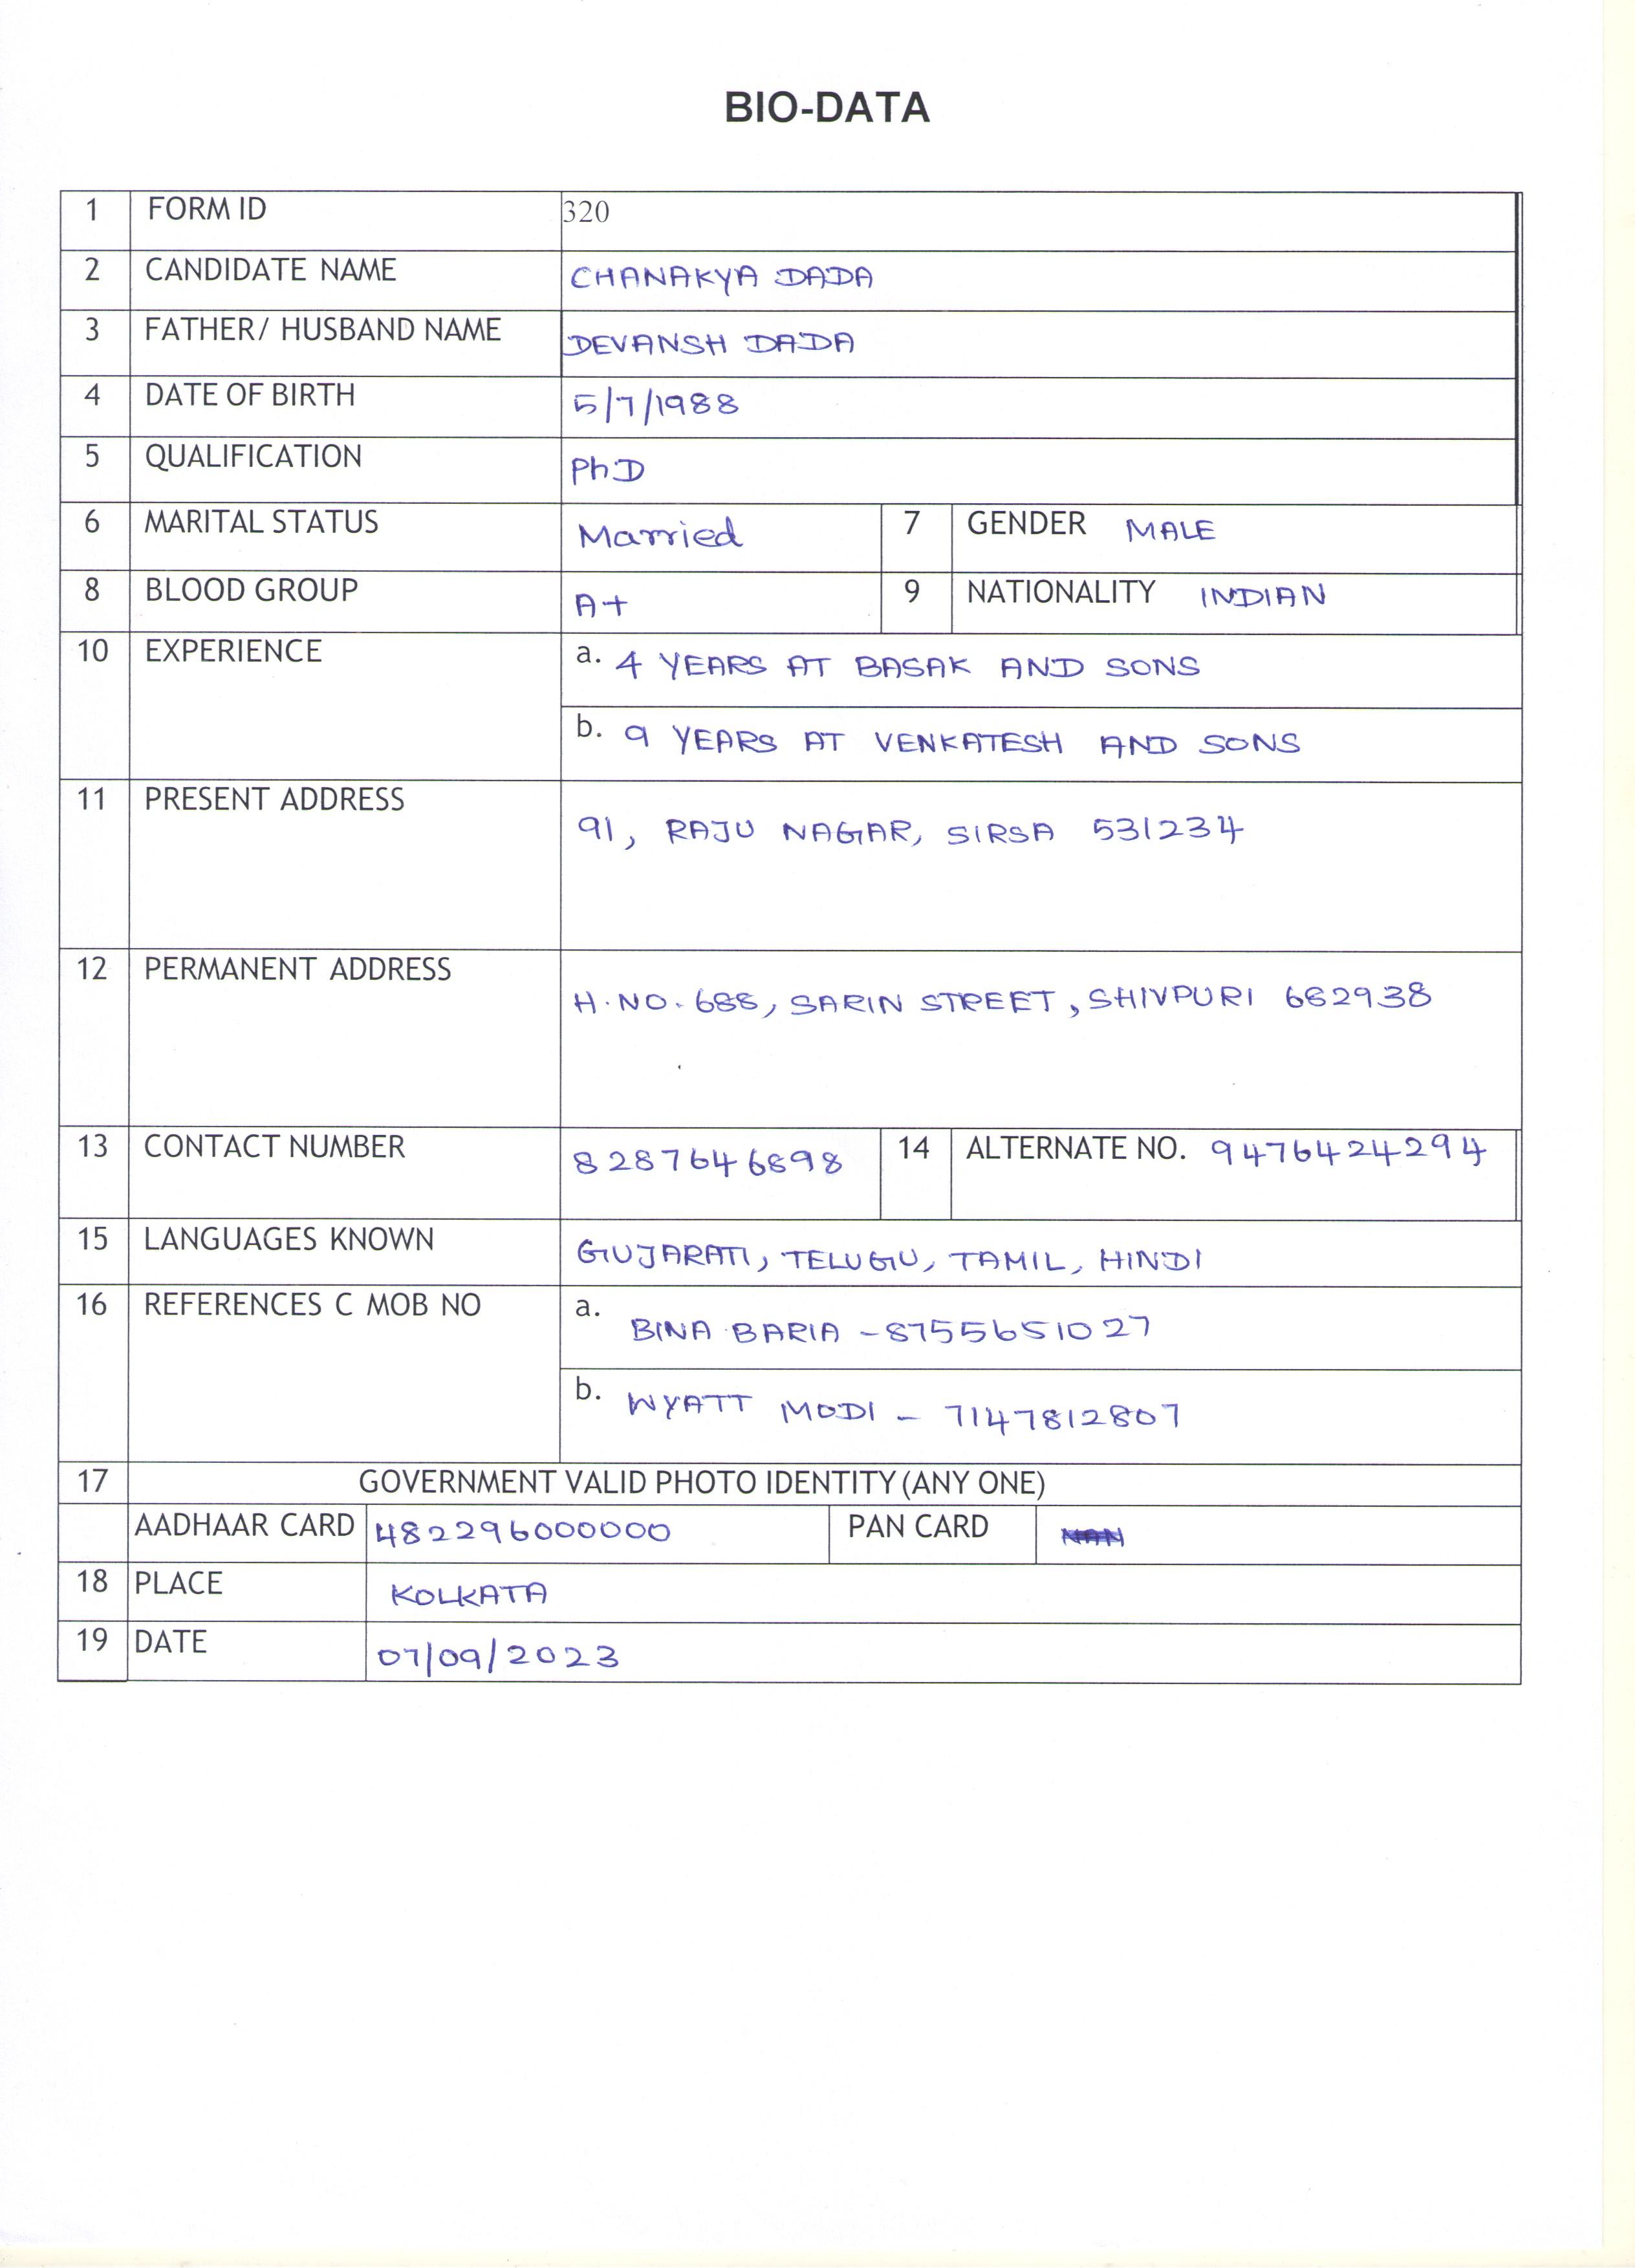 BIO-DATA
1 FORM ID 320
2 CANDIDATE NAME CHANAKYA DADA
3 FATHER/ HUSBAND NAME DEVANSH DADA
4 DATE OF BIRTH 5/7/1988
5 QUALIFICATION PhD
6 MARITAL STATUS Married 7 GENDER MALE
8 BLOOD GROUP A+ 9 NATIONALITY INDIAN
10 EXPERIENCE a. 4 YEARS AT BASAK AND SONS
b. 9 YEARS AT VENKATESH AND SONS
11 PRESENT ADDRESS 91, RAJU NAGAR, SIRSA 531234
12 PERMANENT ADDRESS H.NO. 688, SARIN STREET, SHIVPURI 682938
13 CONTACT NUMBER 8287646898 14 ALTERNATE NO. 9476424294
15 LANGUAGES KNOWN GUJARATI, TELUGU, TAMIL, HINDI
16 REFERENCES C MOB NO a. BINA BARIA - 8755651027
b. WYATT MODI - 7147812807
17 GOVERNMENT VALID PHOTO IDENTITY (ANY ONE)
AADHAAR CARD 482296000000 PAN CARD
18 PLACE KOLKATA
19 DATE 07/09/2023